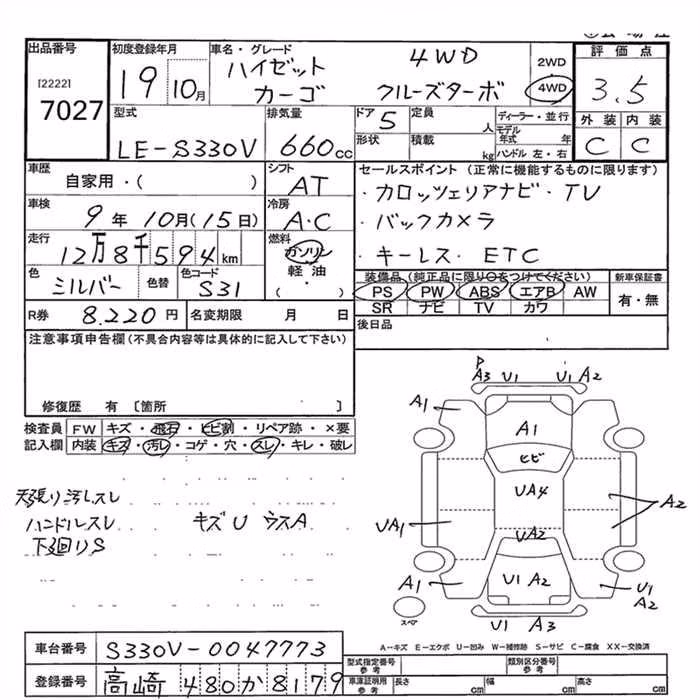 出品番号 初度登録年月 車名・グレード 4WD 2WD 評価点
[2222] 19 10月 ハイゼット カーゴ クルーズターボ 4WD 3.5
7027
型式 排気量 ドア 定員 ディーラー・並行 外装 内装
LE-S330V 660cc 5 人 モデル年式 年 C C
形状 積載 kg ハンドル 左・右
車歴 シフト セールスポイント (正常に機能するものに限ります)
自家用・( ) AT ・カロッツェリアナビ・TV
車検 冷房 ・バックカメラ
9年10月(15日) A・C ・キーレス・ETC
走行 燃料
12万8千594km ガソリン
色 色替 色コード 軽油
シルバー S31 ( ・ )
装備品 (純正品に限り○をつけてください) 新車保証書
PS PW ABS エアB AW 有・無
SR ナビ TV カワ
R券 8.220円 名変期限 月 日 後日品
注意事項申告欄(不具合内容等は具体的に記入して下さい)
修復歴 有 〔箇所 〕
検査員 FW キズ・飛石・ヒビ割・リペア跡・×要
記入欄 内装 キズ・汚レ・コゲ・穴・スレ・キレ・破レ
天張り汚レスレ
ハンドルスレ キズU ウスA
下廻りS
P
A3 U1 U1 A2
A1
A1
ヒビ
UA4
A2
UA1
UA2
A1 U1 A2 U1 A2
スペア
U1 A3
A-キズ E-エクボ U-凹み W-補修跡 S-サビ C-腐食 XX-交換済
車台番号 S330V-0047773
登録番号 高崎 480 か 8179
型式指定番号 参考 類別区分番号 参考
車庫証明用 参考 長さ cm 幅 cm 高さ cm